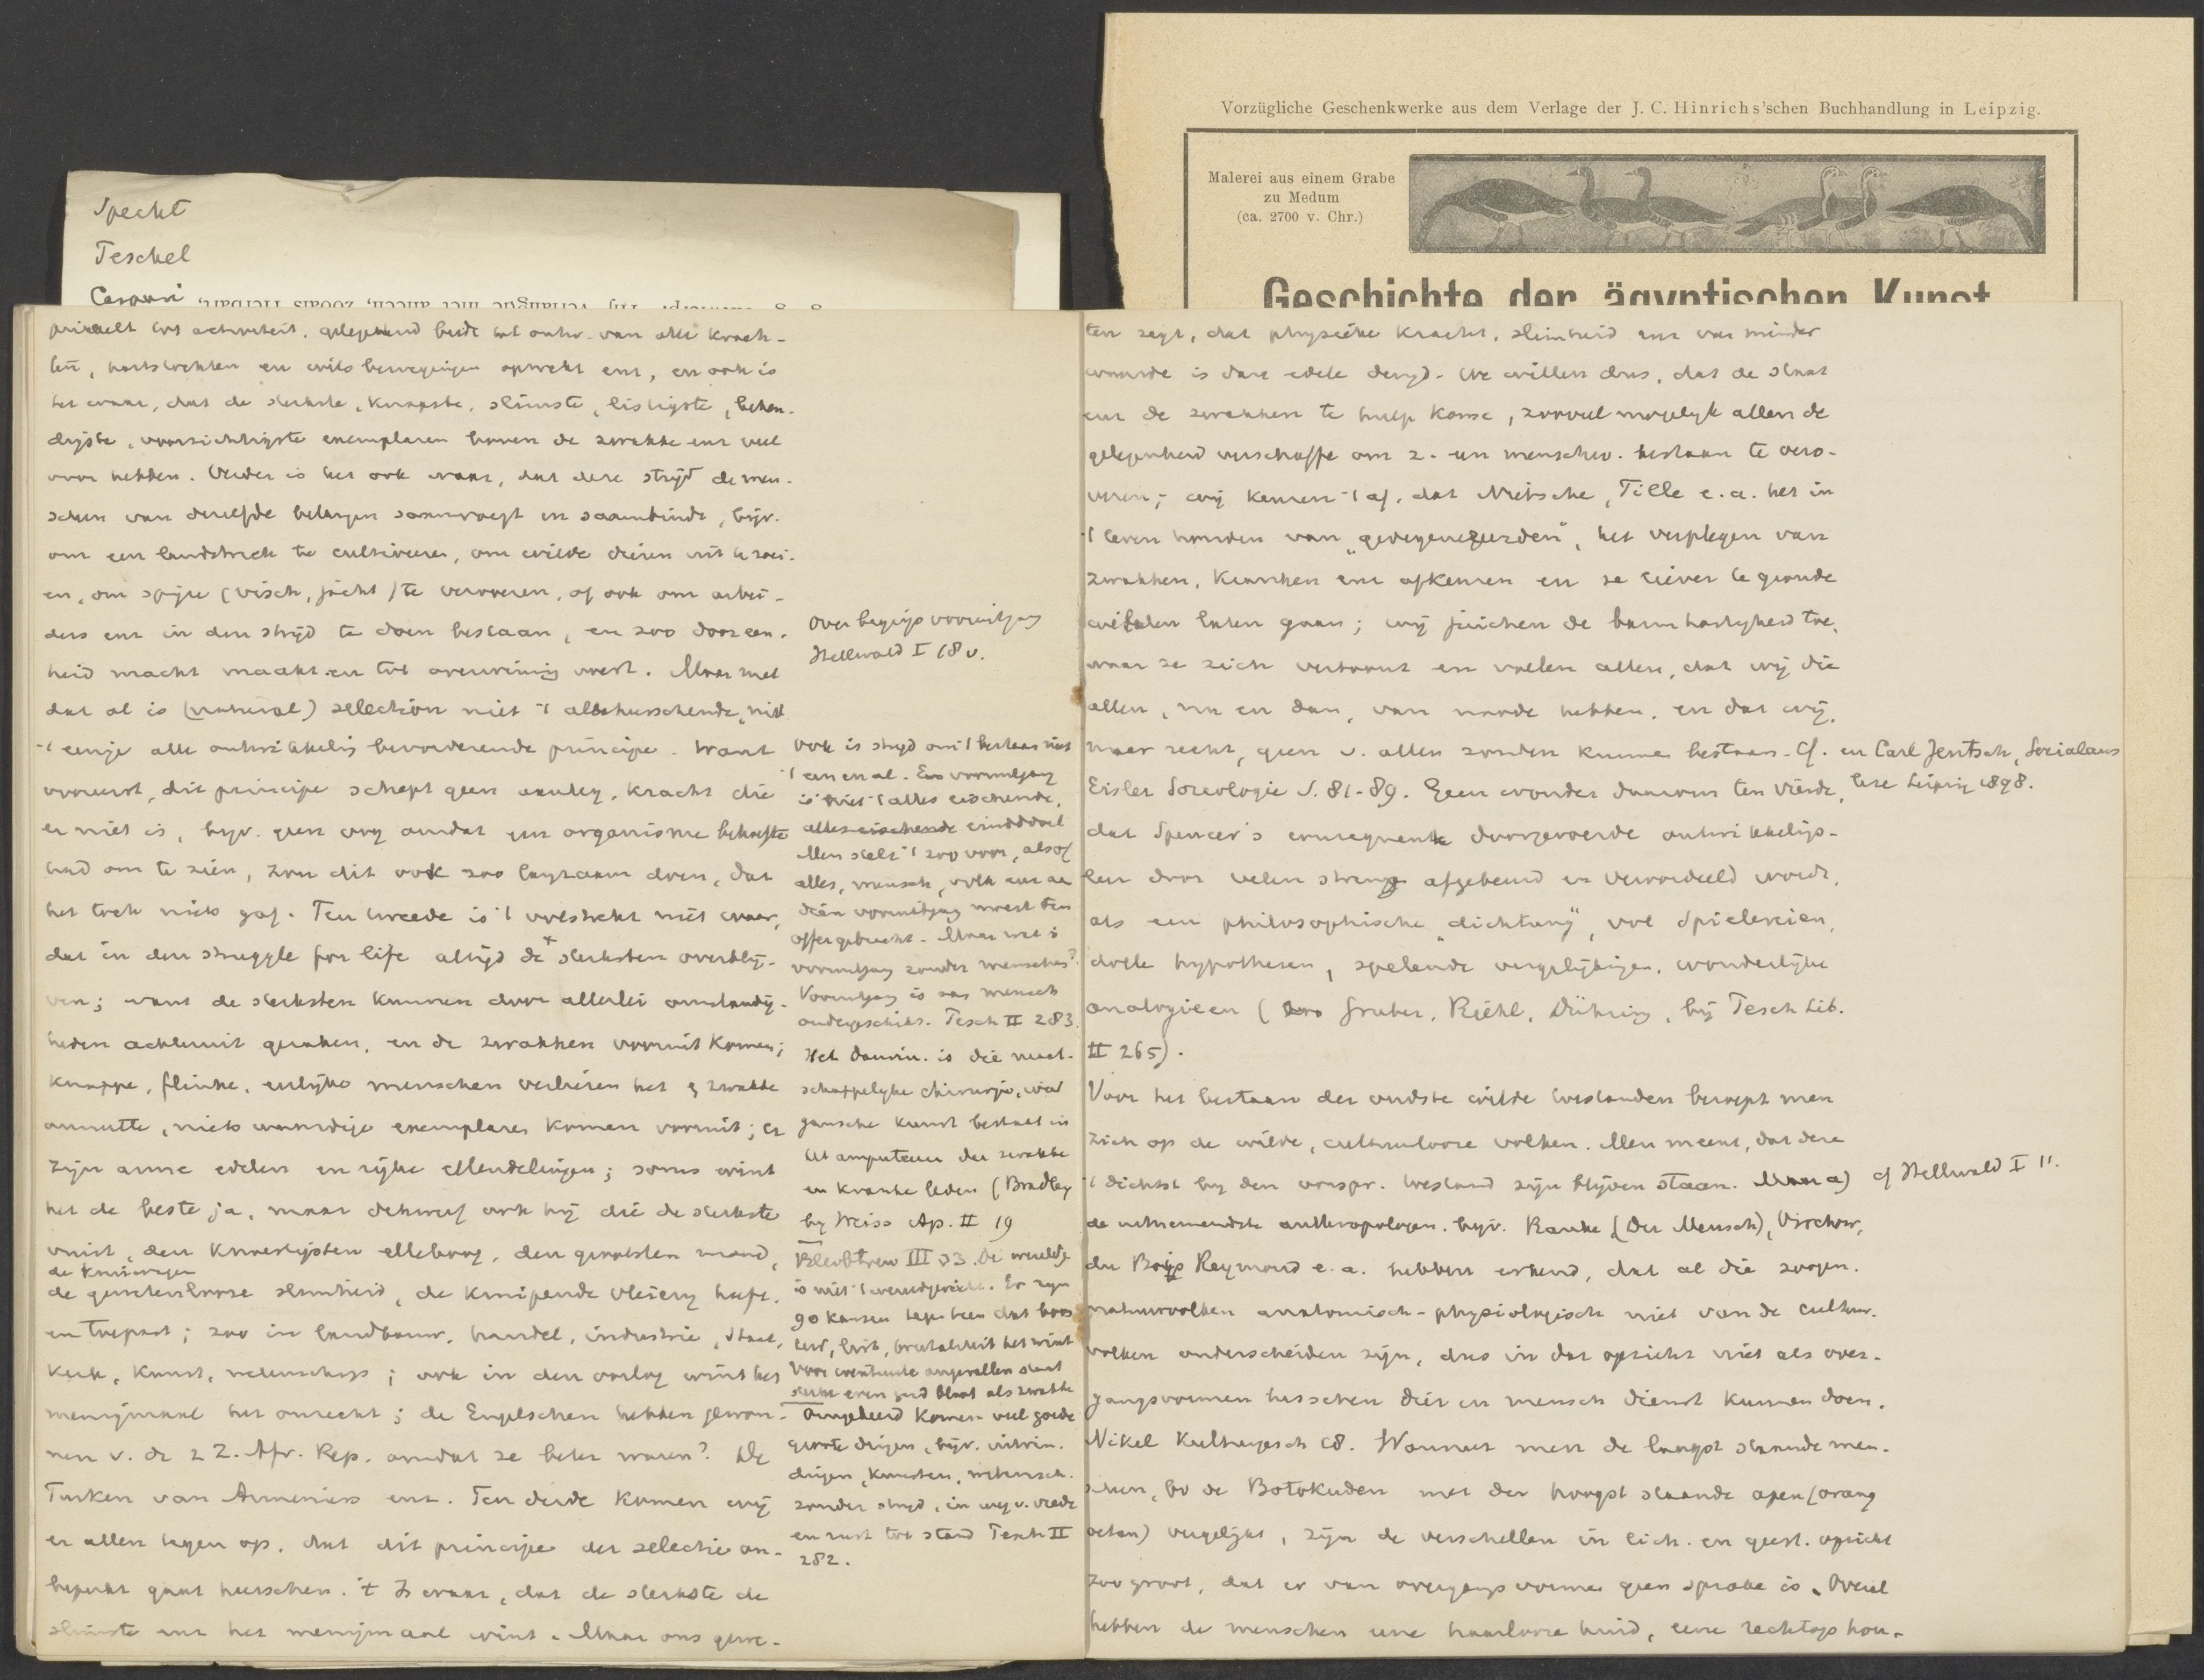 Specht
Teschel
Caspari
Vorzügliche Geschenkwerke aus dem Verlage der J. C. Hinrichs'schen Buchhandlung in Leipzig.
Malerei aus einem Grabe
zu Medum
(ca. 2700 v. Chr.)
Geschichte der ägyptischen Kunst
prikkelt tot activiteit, gelegenheid biedt tot ontw. van alle krach-
ten, hartstochten en wilsbewegingen opwekt enz, en ook is
het waar, dat de sterkste, knapste, slimste, listigste, behen-
digste, voorzichtigste exemplaren boven de zwakke enz veel
voor hebben. Verder is het ook waar, dat deze strijd de men-
schen van dezelfde belangen saamvoegt en saambindt, bijv.
om een landstreek te cultiveeren, om wilde dieren uit te roei-
en, om spijze (visch, jacht) te veroveren, of ook om arbei-
ders enz in den strijd te doen bestaan, en zoo door een-
heid macht maakt en tot overwining voert. Maar met
dat al is (natural) selection niet 't alleheerschende, niet
't eenige alle ontwikkeling bevorderende principe. Want
vooreerst, dit principe schept geen aanleg, kracht die
er niet is, bijv. geen oog omdat een organisme behoefte
had om te zien, zou dit ook zoo langzaam doen, dat
het toch niets gaf. Ten tweede is 't volstrekt niet waar,
dat in den struggle for life altijd de sterksten overblij-
ven; want de sterksten kunnen door allerlei omstandig-
heden achteruit geraken, en de zwakken vooruit komen;
knappe, flinke, eerlijke menschen verliezen het & zwakke
onnutte, nietswaardige exemplaren komen vooruit; er
zijn arme edelen en rijke ellendelingen; soms wint
het de beste ja, maar dikwerf ook hij die de sterkste
vuist, den knoestigsten elleboog, den grootsten mond,
de kruiwagen
de gewetenlooze slimheid, de kruipende vleierij heeft.
en toepast; zoo in landbouw, handel, industrie, staat,
kerk, kunst, wetenschap; ook in den oorlog wint het
menigmaal het onrecht; de Engelschen hebben gewon-
nen v. de 2 Z. Afr. Rep. omdat ze beter waren? De
Turken van Armeniers enz. Ten derde komen wij
er allen tegen op, dat dit principe der selectie on-
beperkt gaat heerschen. 't Is waar, dat de sterkste de
slimste enz het menigmaal wint. Maar ons gewe-
Over begrip vooruitgang
Hellwald I 18 v.
Ook is strijd om 't bestaan niet
't een en al. Een vooruitgang
is niet 't alles eischende,
alles eischende einddoel
Men stelt 't zoo voor, alsof
alles, mensch, volk enz aan
dien vooruitgang moest ten
offer gebracht. Maar wat is
vooruitgang zonder menschen?
Vooruitgang is aan mensch
ondergeschikt. Tesch II 283.
Het Darwin. is die maat-
schappelijke chirurgie, wier
gansche kunst bestaat in
het amputeeren der zwakke
en kranke leden (Bradley
bij Weiss Ap. II 19
Bleibtreu III 33. De wereldg.
is niet 't wereldgericht. Er zijn
90 kansen tegen tien dat boos
heid, list, brutaliteit het wint
Voor eventueele ongevallen staat
sterke even goed bloot als zwakke
Omgekeerd komen veel goede
groote dingen, bijv. uitvin-
dingen, kunsten, wetensch.
zonder strijd, in weg v. vrede
en rust tot stand Tesch II
282.
ten zegt, dat physieke kracht, slimheid enz van minder
waarde is dan edele deugd. We willen dus, dat de staat
enz de zwakken te hulp kome, zooveel mogelijk allen de
gelegenheid verschaffe om z. een menschw. bestaan te vero-
veren; wij keuren 't af, dat Nietsche, Tille e.a. het in
't leven houden van „gedegenereerden", het verplegen van
zwakken, kranken enz afkeuren en ze liever te gronde
willen laten gaan; wij juichen de barmhartigheid toe,
waar ze zich vertoont en voelen allen, dat wij die
allen, nu en dan, van noode hebben, en dat wij,
naar recht, geen v. allen zouden kunnen bestaan. Cf. en Carl Jentsch, Socialaus
lese Leipzig 1898.
Eisler Sociologie S. 81-89. Geen wonder daarom ten vierde,
dat Spencer's consequente doorgevoerde ontwikkelings-
leer door velen streng afgekeurd en veroordeeld wordt,
als een philosophische „dichtung", vol Spielereien,
dolle hypothesen, spelende vergelijkingen, wonderlijke
analogieen (zoo Gruber, Riehl, Dühring, bij Tesch Lib.
II 265).
Voor het bestaan der oudste wilde toestanden beroept men
zich op de wilde, cultuurlooze volken. Men meent, dat deze
't dichtst bij den oorspr. toestand zijn blijven staan. Maar a) cf Hellwald I 11.
de uitnemendste anthropologen. bijv. Ranke (Der Mensch), Virchow,
du Bois Reymond e.a. hebben erkend, dat al die zoogen.
natuurvolken anatomisch-physiologisch niet van de cultuur-
volken onderscheiden zijn, dus in dat opzicht niet als over-
gangsvormen tusschen dier en mensch dienst kunnen doen.
Nikel Kulturgesch 18. Wanneer men de laagst staande men-
schen, bv de Botokuden met der hoogst staande apen (orang
oetan) vergelijkt, zijn de verschillen in lich. en geest. opzicht
zoo groot, dat er van overgangsvormen geen sprake is. Overal
hebben de menschen eene haarlooze huid, eene rechtop hou-